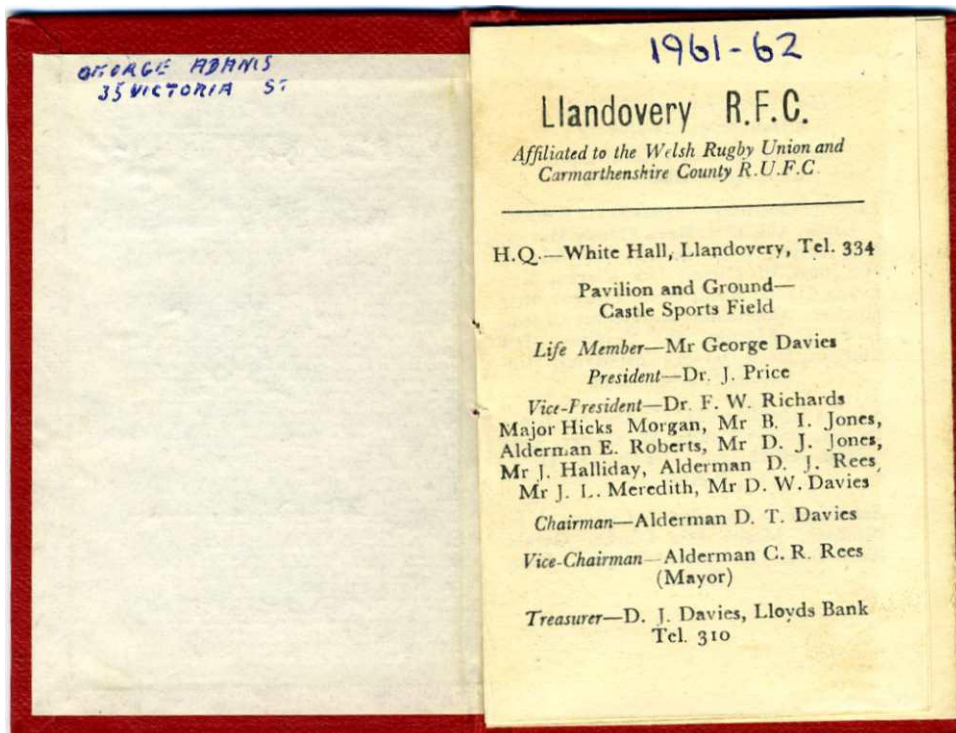 GEORGE ADAMS
35 VICTORIA ST
1961-62
Llandovery R.F.C.
Affiliated to the Welsh Rugby Union and
Carmarthenshire County R.U.F.C.
H.Q.—White Hall, Llandovery, Tel. 334
Pavilion and Ground—
Castle Sports Field
Life Member—Mr George Davies
President—Dr. J. Price
Vice-President—Dr. F. W. Richards
Major Hicks Morgan, Mr B. I. Jones,
Alderman E. Roberts, Mr D. J. Jones,
Mr J. Halliday, Alderman D. J. Rees,
Mr J. L. Meredith, Mr D. W. Davies
Chairman—Alderman D. T. Davies
Vice-Chairman—Alderman C. R. Rees
(Mayor)
Treasurer—D. J. Davies, Lloyds Bank
Tel. 310